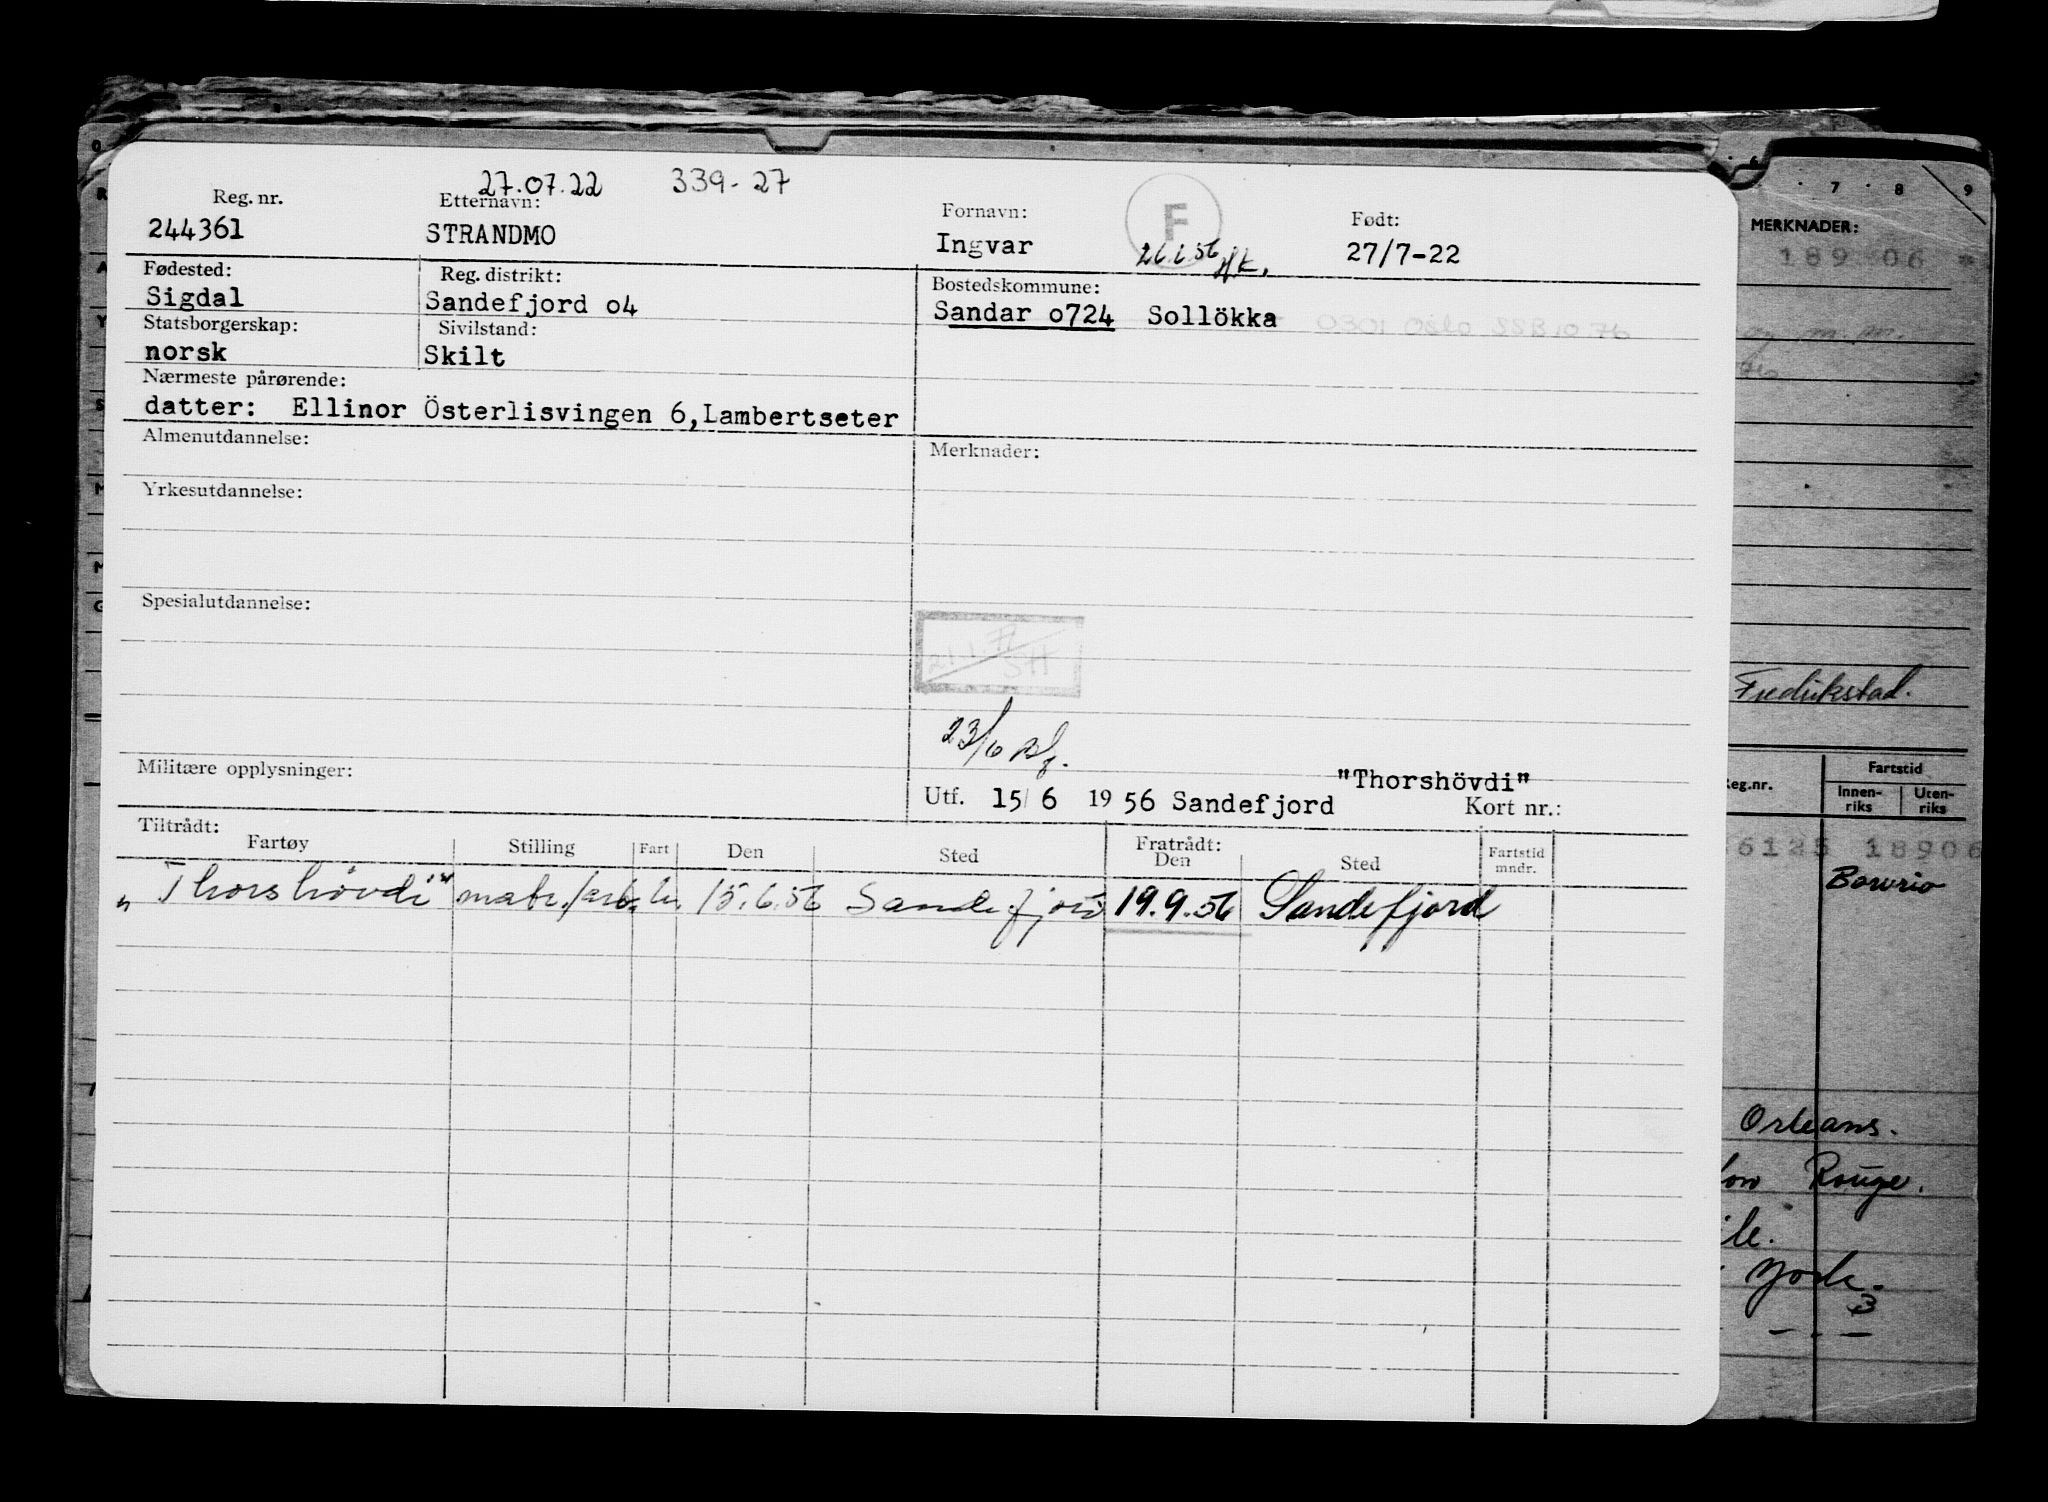 27.07.22 339-27
Reg. nr. Etternavn: Fornavn: F Født:
244361 STRANDMO Ingvar 26.6.56 27/7-22
Fødested: Reg. distrikt: Bostedskommune:
Sigdal Sandefjord o4 Sandar o724 Sollökka 0301 Oslo SSB 10 76
Statsborgerskap: Sivilstand:
norsk Skilt
Nærmeste pårørende:
datter: Ellinor Österlisvingen 6,Lambertseter
Almenutdannelse: Merknader:
Yrkesutdannelse:
Spesialutdannelse:
23/6
Militære opplysninger: "Thorshövdi"
Utf. 15/ 6 19 56 Sandefjord Kort nr.:
Tiltrådt: Fratrådt:
Fartøy Stilling Fart Den Sted Den Sted Fartstid mndr.
"Thorshövdi" matr./arb. 15.6.56 Sandefjord 19.9.56 Sandefjord
6 7 8 9
MERKNADER:
189 06
Fredrikstad.
eg.nr. Fartstid
Innen-riks Uten-riks
6125 18906
Orleans.
Rouge.
ile.
York.
3